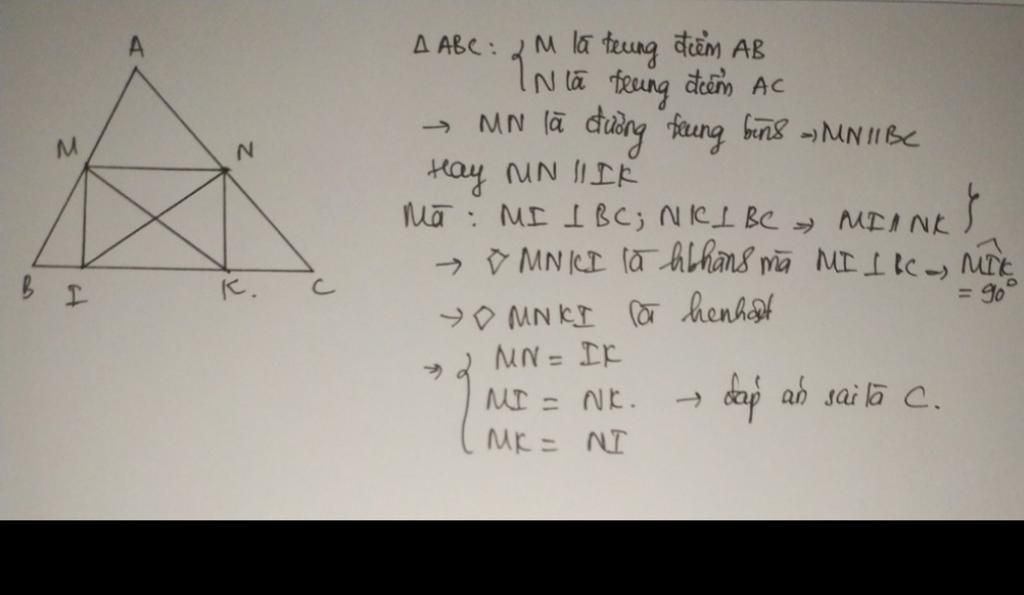 A
M
N
B
I
K.
C
Δ ABC: { M là trung điểm AB
N là trung điểm AC
→ MN là đường trung bình → MN // BC
Hay MN // IK
Mà : MI ⊥ BC; NK ⊥ BC → MI // NK }
→ ◇ MNKI là hbhành mà MI ⊥ BC → MIK
= 90°
→ ◇ MNKI là hcnhật
→ { MN = IK
MI = NK. → đáp án sai là C.
MK = NI